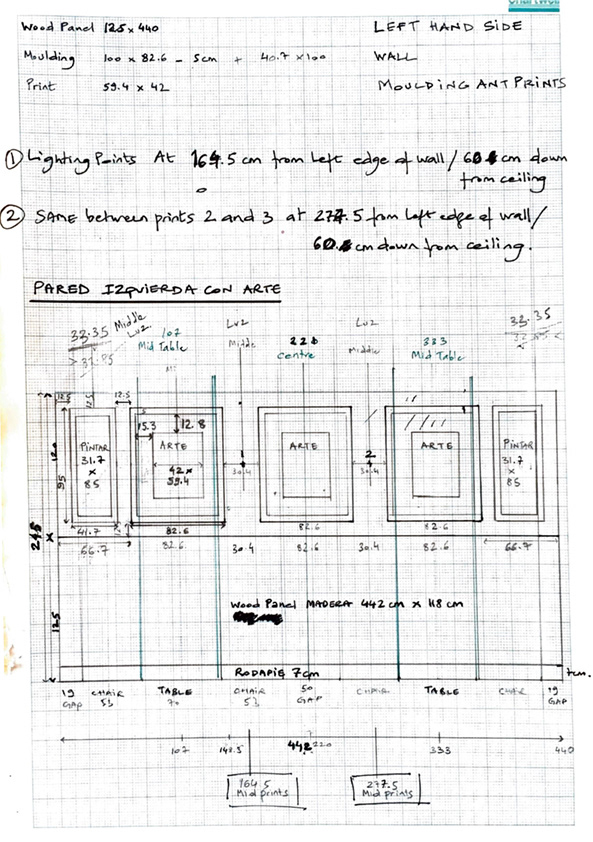 Wood Panel 125 x 440
LEFT HAND SIDE
Moulding 100 x 82.6 - 5cm + 40.7 x 100
WALL
Print 59.4 x 42
MOULDING ANT PRINTS
① Lighting Points At 164.5 cm from left edge of wall / 60 cm down
from ceiling
② SAME between prints 2 and 3 at 277.5 from left edge of wall /
60 cm down from ceiling.
PARED IZQUIERDA CON ARTE
33.35 Middle Luz
107
Mid Table
Luz
Middle
220
centre
Luz
Middle
333
Mid Table
33.35
12.5
12.5
12.5
15.3
12.8
PINTAR
31.7
x
85
ARTE
42x
59.4
1
30.4
ARTE
2
30.4
ARTE
PINTAR
31.7
x
85
120
95
245
41.7
82.6
82.6
82.6
66.7
82.6
30.4
82.6
30.4
82.6
66.7
Wood Panel MADERA 442 cm x 118 cm
125
RODAPIE 7cm
7cm.
19
GAP
CHAIR
53
TABLE
70
CHAIR
53
50
GAP
CHAIR
TABLE
CHAIR
19
GAP
107
148.5
442
220
333
440
164.5
Mid prints
277.5
Mid prints